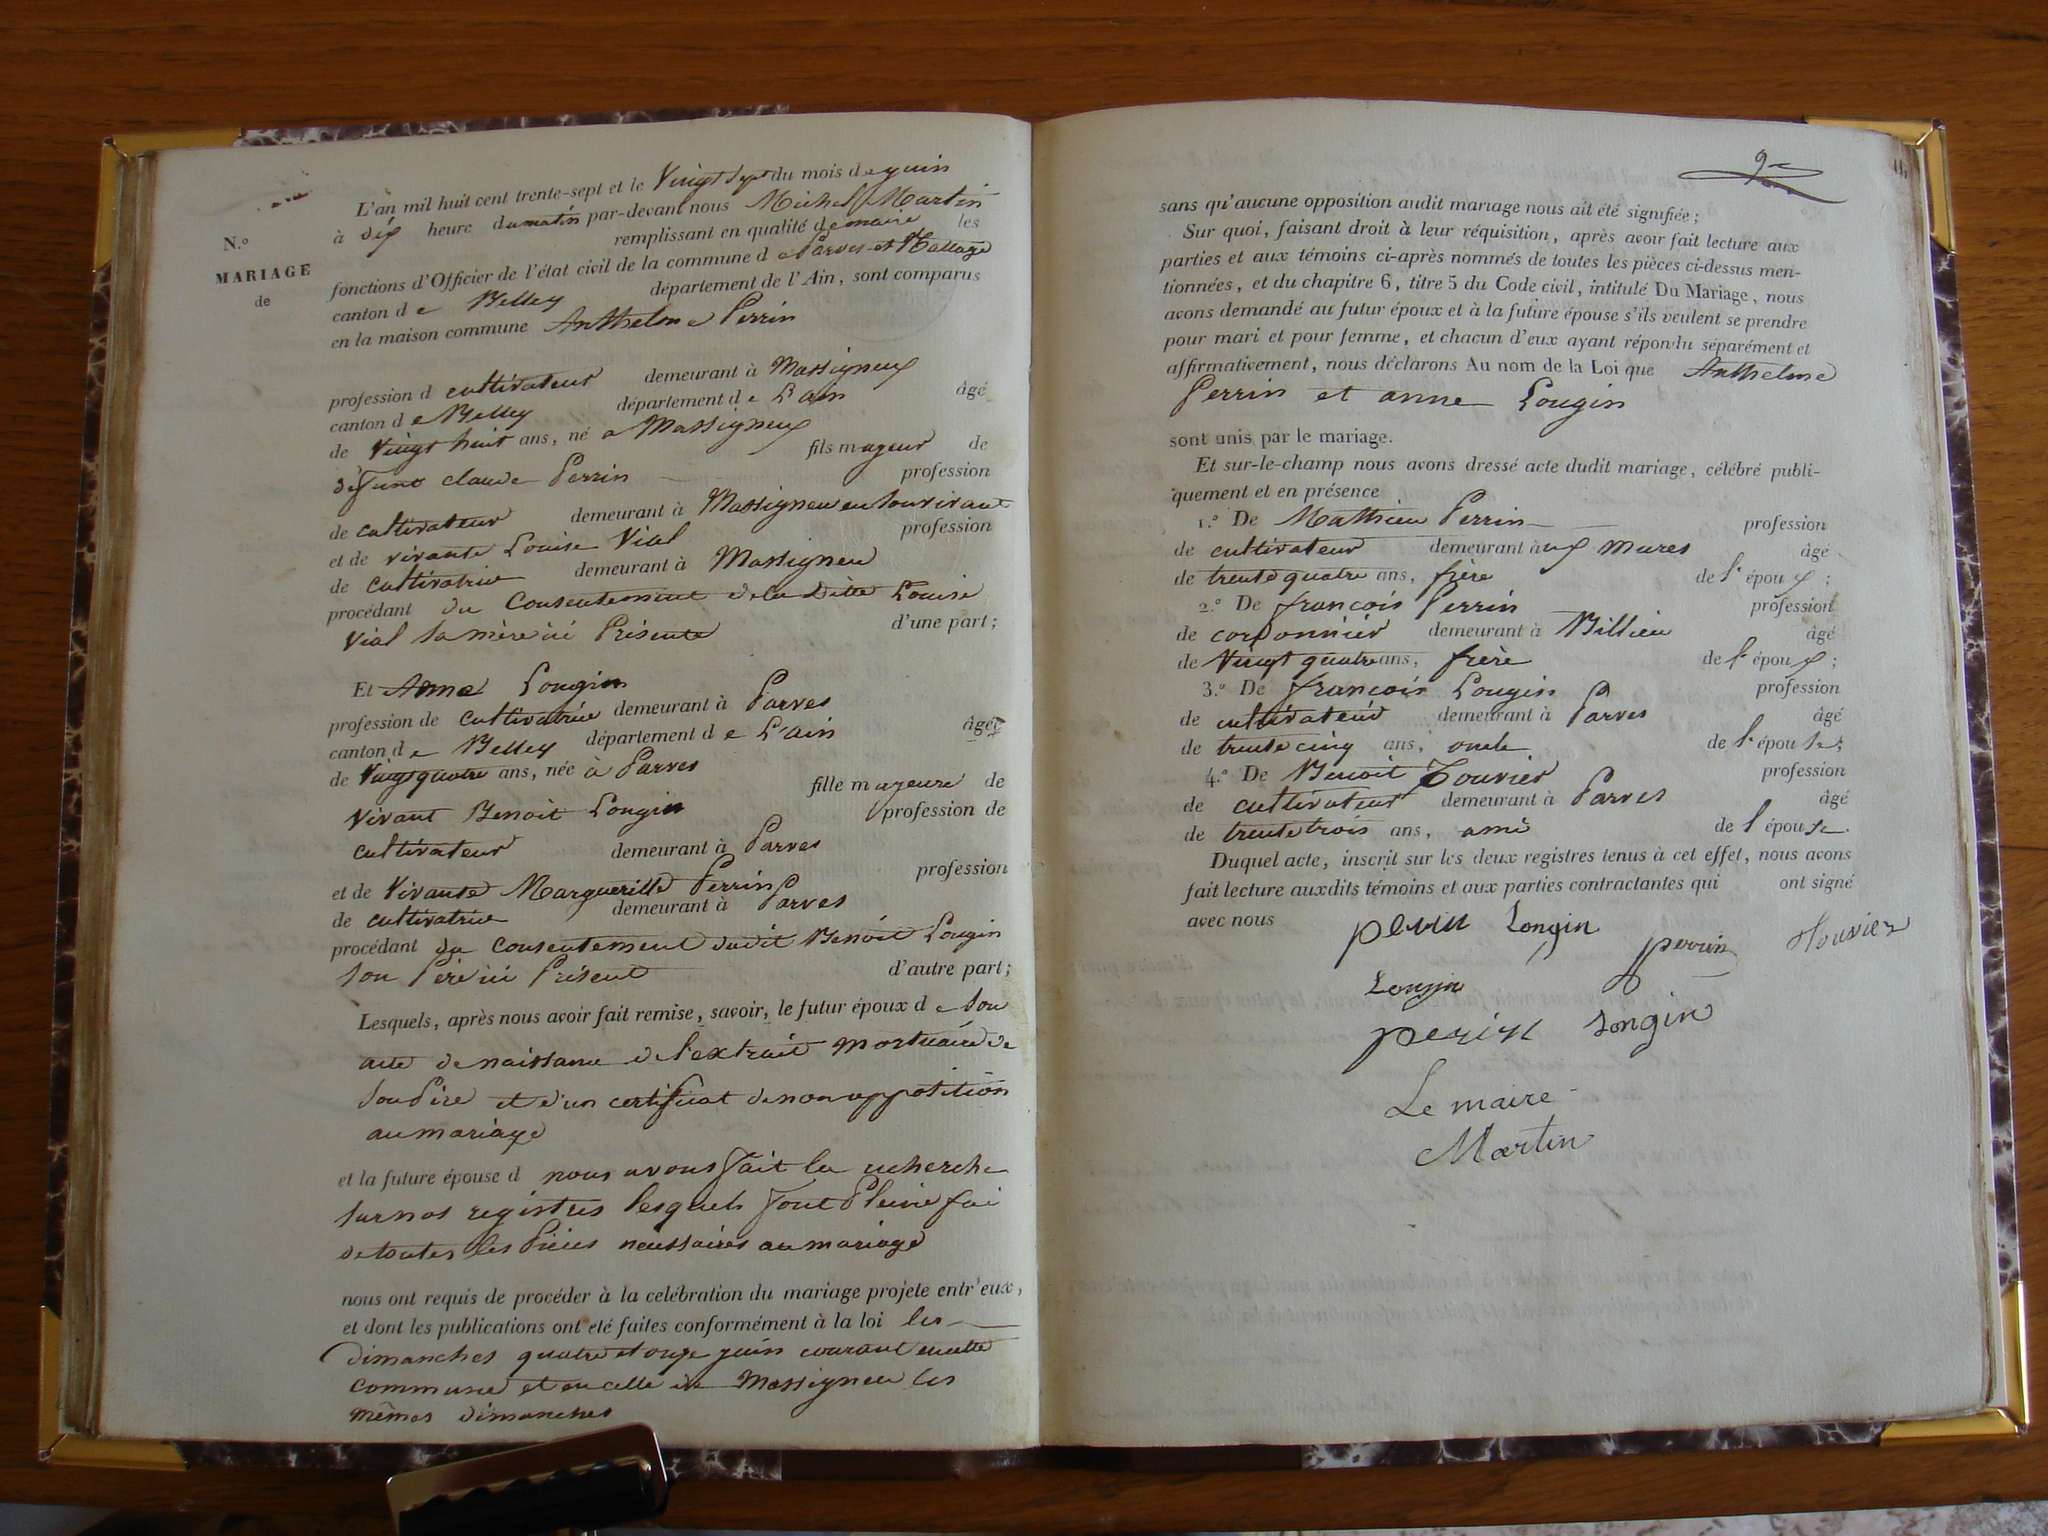 N.o
MARIAGE
de
L'an mil huit cent trente-sept et le Vingt Sept du mois de juin
à dix heure du matin par-devant nous Michel Martin
remplissant en qualité de maire les
fonctions d'Officier de l'état civil de la commune de Parves et Nattage
canton de Belley département de l'Ain, sont comparus
en la maison commune Anthelme Perrin
profession d cultivateur demeurant à Massigneux
canton de Belley département de L'ain âgé
de Vingt huit ans, né a Massigneux
fils mageur de
défunt claude Perrin profession
de cultivateur demeurant à Massigneu en son vivant
et de vivante Louise Vial profession
de cultivatrice demeurant à Massigneu
procédant du Consentement de la Ditte Louise
Vial sa mère ici Présente d'une part;
Et Anne Longin
profession de cultivatrice demeurant à Parves
canton de Belley département de L'ain âgée
de Vingt quatre ans, née à Parves
fille mageure de
Vivant Benoit Longin profession de
cultivateur demeurant à Parves
et de Vivante Margueritte Perrin profession
de cultivatrice demeurant à Parves
procédant du Consentement dudit Benoit Longin
son Père ici Présent d'autre part;
Lesquels, après nous avoir fait remise, savoir, le futur époux de son
acte de naissance de l'extrait mortuaire de
son Père et d'un certificat de non opposition
au mariage
et la future épouse d nous avons fait la recherche
sur nos registres lesquels font Pleine foi
de toutes les Pièces necessaires au mariage
nous ont requis de procéder à la celébration du mariage projete entr'eux,
et dont les publications ont été faites conformément à la loi les
dimanches quatre et onze juin courant en cette
commune et en celle de Massigneu les
mêmes dimanches
9e
sans qu'aucune opposition audit mariage nous ait été signifiée;
Sur quoi, faisant droit à leur réquisition, après avoir fait lecture aux
parties et aux témoins ci-après nommés de toutes les pièces ci-dessus men-
tionnées, et du chapitre 6, titre 5 du Code civil, intitulé Du Mariage, nous
avons demandé au futur époux et à la future épouse s'ils veulent se prendre
pour mari et pour femme, et chacun d'eux ayant répondu séparément et
affirmativement, nous déclarons Au nom de la Loi que Anthelme
Perrin et anne Longin
sont unis par le mariage.
Et sur-le-champ nous avons dressé acte dudit mariage, célébré publi-
quement et en présence
1.o De Mathieu Perrin profession
de cultivateur demeurant aux mures âgé
de trente quatre ans, frère de l'époux;
2.o De françois Perrin profession
de cordonnier demeurant à Billieu âgé
de Vingt quatre ans, frère de l'époux;
3.o De françois Longin profession
de cultivateur demeurant à Parves âgé
de trente cinq ans, oncle de l'épouse;
4.o De Benoit Touvier profession
de cultivateur demeurant à Parves âgé
de trente trois ans, ami de l'épouse
Duquel acte, inscrit sur les deux registres tenus à cet effet, nous avons
fait lecture auxdits témoins et aux parties contractantes qui ont signé
avec nous perrin Longin perrin Touvier
Longin
perin Longin
Le maire
Martin